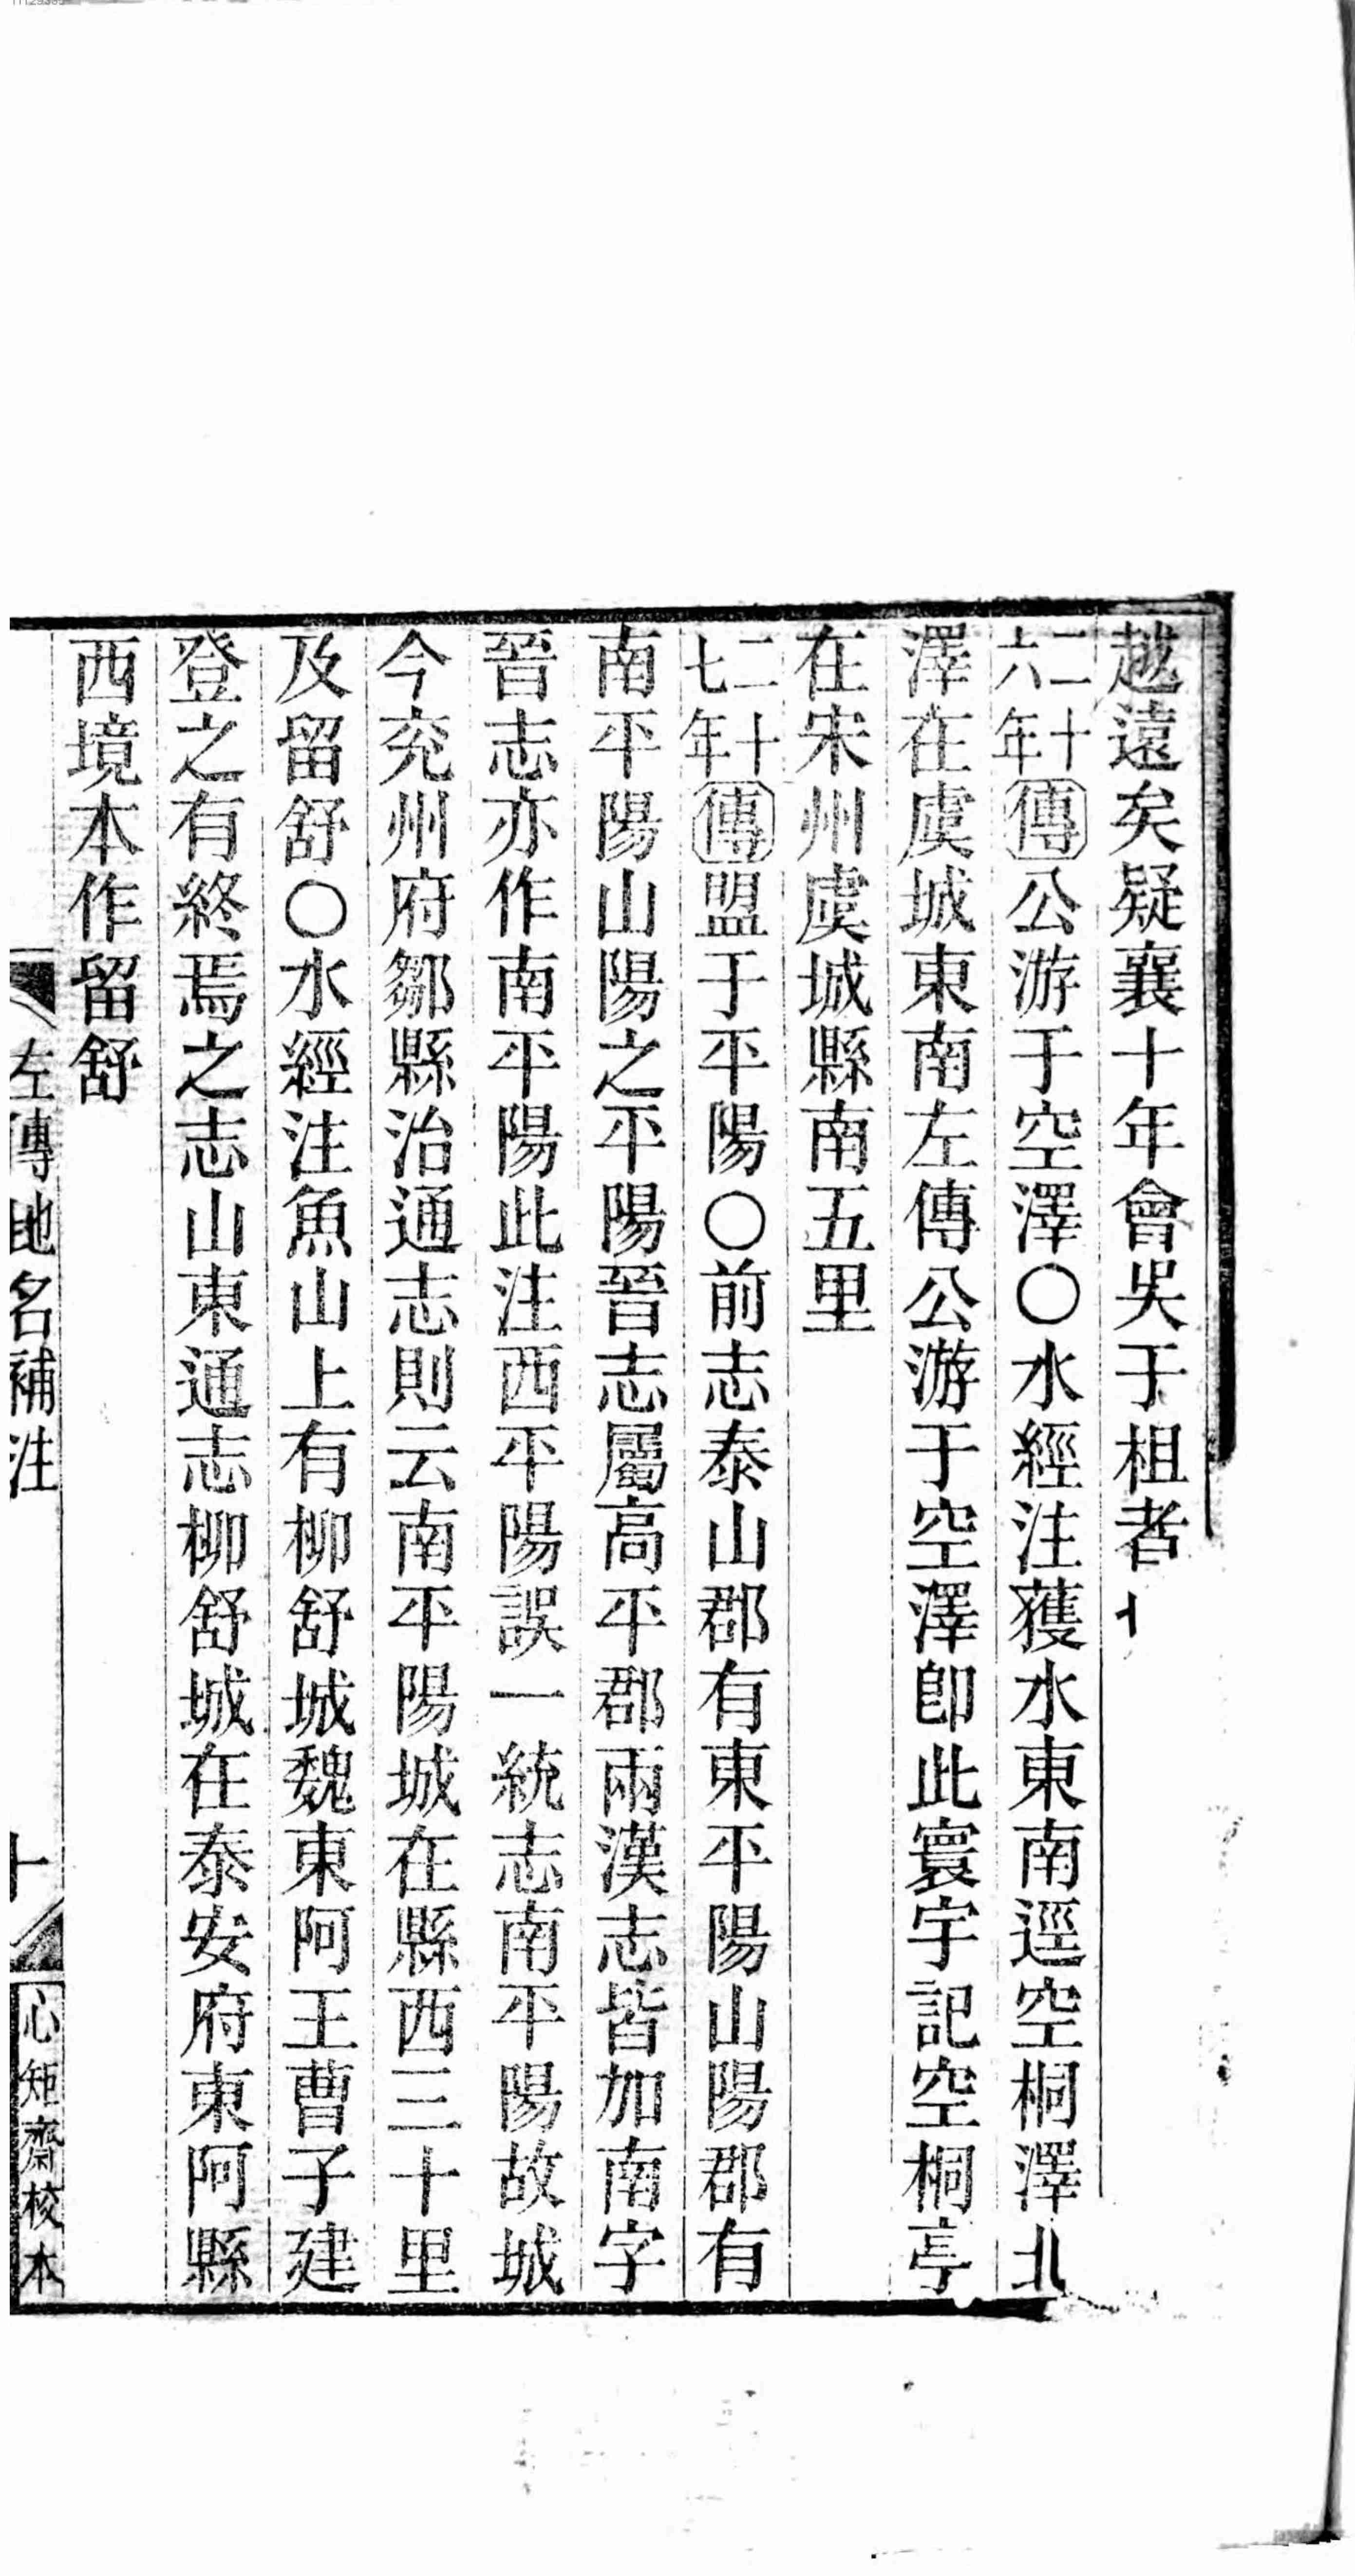 越遠矣疑襄十年會吳于柤者
二十六年傳公游于空澤○水經注獲水東南逕空桐澤北
澤在虞城東南左傳公游于空澤卽此寰宇記空桐亭
在宋州虞城縣南五里
二十七年傳盟于平陽○前志泰山郡有東平陽山陽郡有
南平陽山陽之平陽晉志屬高平郡兩漢志皆加南字
晉志亦作南平陽此注西平陽誤一統志南平陽故城
今兗州府鄒縣治通志則云南平陽城在縣西三十里
及留舒○水經注魚山上有柳舒城魏東阿王曹子建
登之有終焉之志山東通志柳舒城在泰安府東阿縣
西境本作留舒
左傳地名補注
十
心矩齋校本